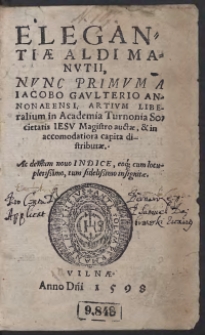 ELEGAN-
TIÆ ALDI MA-
NVTII,
NVNC PRIMVM A
IACOBO GAVLTERIO AN-
NONAERENSI, ARTIVM LIBE-
ralium in Academia Turnonia So-
cietatis IESV Magistro auctæ, & in
accomodatiora capita di-
stributæ.
Ac demum nouo INDICE, eoq; cum locu-
pletissimo, tum fidelissimo insignitæ.
IHS
VILNÆ
Anno Dñi 1598
9.848